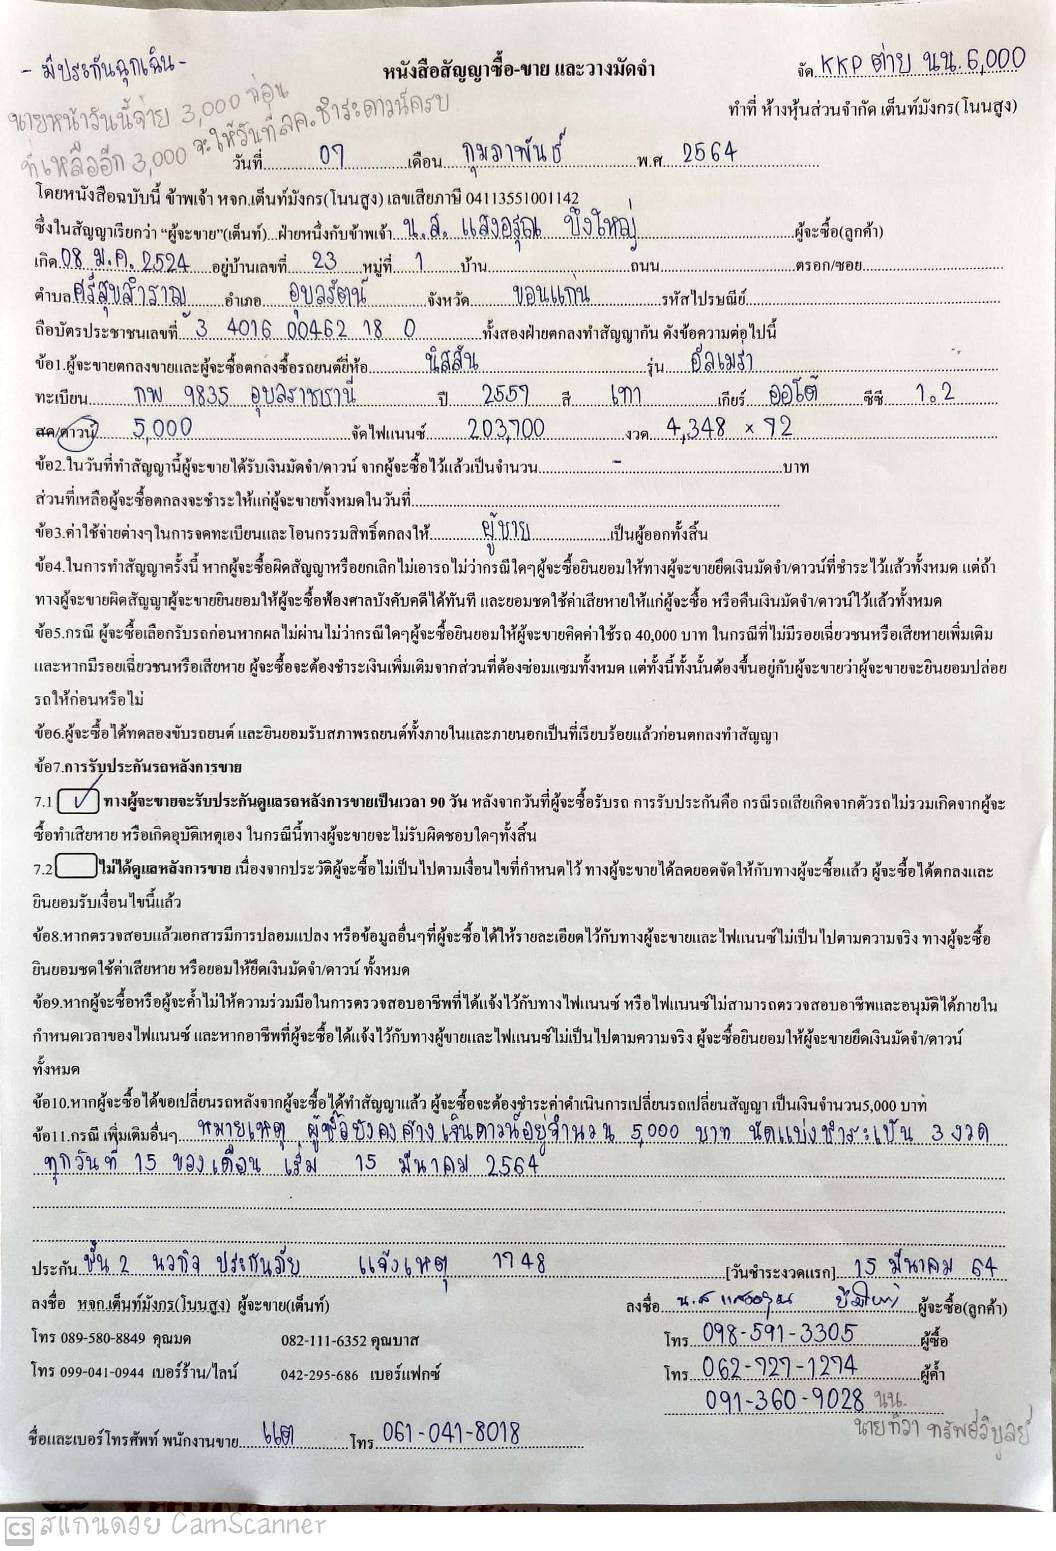 - มีประกันฉุกเฉิน -
หนังสือสัญญาซื้อ-ขาย และวางมัดจำ
จัด KKP ต่าย นน. 6,000
นายหน้าวันนี้จ่าย 3,000 ก่อน
ที่เหลืออีก 3,000 จะให้วันที่ลค.ชำระดาวน์ครบ
ทำที่ ห้างหุ้นส่วนจำกัด เต็นท์มังกร(โนนสูง)
วันที่ 07 เดือน กุมภาพันธ์ พ.ศ 2564
โดยหนังสือฉบับนี้ ข้าพเจ้า หจก.เต็นท์มังกร(โนนสูง) เลขเสียภาษี 04113551001142
ซึ่งในสัญญาเรียกว่า "ผู้จะขาย"(เต็นท์)...ฝ่ายหนึ่งกับข้าพเจ้า น.ส. แสงอรุณ บึงใหญ่ ผู้จะซื้อ(ลูกค้า)
เกิด 08 ม.ค. 2524 อยู่บ้านเลขที่ 23 หมู่ที่ 1 บ้าน ถนน ตรอก/ซอย
ตำบล ศรีสุขสำราญ อำเภอ อุบลรัตน์ จังหวัด ขอนแก่น รหัสไปรษณีย์
ถือบัตรประชาชนเลขที่ 3 4016 00462 18 0 ทั้งสองฝ่ายตกลงทำสัญญากัน ดังข้อความต่อไปนี้
ข้อ1.ผู้จะขายตกลงขายและผู้จะซื้อตกลงซื้อรถยนต์ยี่ห้อ นิสสัน รุ่น อัลเมร่า
ทะเบียน กพ 9835 อุบลราชธานี ปี 2557 สี เทา เกียร์ ออโต้ ซีซี 1.2
สด/ดาวน์ 5,000 จัดไฟแนนซ์ 203,700 งวด 4,348 × 72
ข้อ2.ในวันที่ทำสัญญานี้ผู้จะขายได้รับเงินมัดจำ/ดาวน์ จากผู้จะซื้อไว้แล้วเป็นจำนวน - บาท
ส่วนที่เหลือผู้จะซื้อตกลงจะชำระให้แก่ผู้จะขายทั้งหมดในวันที่
ข้อ3.ค่าใช้จ่ายต่างๆในการจดทะเบียนและโอนกรรมสิทธิ์ตกลงให้ ผู้ขาย เป็นผู้ออกทั้งสิ้น
ข้อ4.ในการทำสัญญาครั้งนี้ หากผู้จะซื้อผิดสัญญาหรือยกเลิกไม่เอารถไม่ว่ากรณีใดๆผู้จะซื้อยินยอมให้ทางผู้จะขายยึดเงินมัดจำ/ดาวน์ที่ชำระไว้แล้วทั้งหมด แต่ถ้า
ทางผู้จะขายผิดสัญญาผู้จะขายยินยอมให้ผู้จะซื้อฟ้องศาลบังคับคดีได้ทันที และยอมชดใช้ค่าเสียหายให้แก่ผู้จะซื้อ หรือคืนเงินมัดจำ/ดาวน์ไว้แล้วทั้งหมด
ข้อ5.กรณี ผู้จะซื้อเลือกรับรถก่อนหากผลไม่ผ่านไม่ว่ากรณีใดๆผู้จะซื้อยินยอมให้ผู้จะขายคิดค่าใช้รถ 40,000 บาท ในกรณีที่ไม่มีรอยเฉี่ยวชนหรือเสียหายเพิ่มเติม
และหากมีรอยเฉี่ยวชนหรือเสียหาย ผู้จะซื้อจะต้องชำระเงินเพิ่มเติมจากส่วนที่ต้องซ่อมแซมทั้งหมด แต่ทั้งนี้ทั้งนั้นต้องขึ้นอยู่กับผู้จะขายว่าผู้จะขายจะยินยอมปล่อย
รถให้ก่อนหรือไม่
ข้อ6.ผู้จะซื้อได้ทดลองขับรถยนต์ และยินยอมรับสภาพรถยนต์ทั้งภายในและภายนอกเป็นที่เรียบร้อยแล้วก่อนตกลงทำสัญญา
ข้อ7.การรับประกันรถหลังการขาย
7.1 ✓ ทางผู้จะขายจะรับประกันดูแลรถหลังการขายเป็นเวลา 90 วัน หลังจากวันที่ผู้จะซื้อรับรถ การรับประกันคือ กรณีรถเสียเกิดจากตัวรถไม่รวมเกิดจากผู้จะ
ซื้อทำเสียหาย หรือเกิดอุบัติเหตุเอง ในกรณีนี้ทางผู้จะขายจะไม่รับผิดชอบใดๆทั้งสิ้น
7.2 ไม่ได้ดูแลหลังการขาย เนื่องจากประวัติผู้จะซื้อไม่เป็นไปตามเงื่อนไขที่กำหนดไว้ ทางผู้จะขายได้ลดยอดจัดให้กับทางผู้จะซื้อแล้ว ผู้จะซื้อได้ตกลงและ
ยินยอมรับเงื่อนไขนี้แล้ว
ข้อ8.หากตรวจสอบแล้วเอกสารมีการปลอมแปลง หรือข้อมูลอื่นๆที่ผู้จะซื้อได้ให้รายละเอียดไว้กับทางผู้จะขายและไฟแนนซ์ไม่เป็นไปตามความจริง ทางผู้จะซื้อ
ยินยอมชดใช้ค่าเสียหาย หรือยอมให้ยึดเงินมัดจำ/ดาวน์ ทั้งหมด
ข้อ9.หากผู้จะซื้อหรือผู้จะค้ำไม่ให้ความร่วมมือในการตรวจสอบอาชีพที่ได้แจ้งไว้กับทางไฟแนนซ์ หรือไฟแนนซ์ไม่สามารถตรวจสอบอาชีพและอนุมัติได้ภายใน
กำหนดเวลาของไฟแนนซ์ และหากอาชีพที่ผู้จะซื้อได้แจ้งไว้กับทางผู้ขายและไฟแนนซ์ไม่เป็นไปตามความจริง ผู้จะซื้อยินยอมให้ผู้จะขายยึดเงินมัดจำ/ดาวน์
ทั้งหมด
ข้อ10.หากผู้จะซื้อได้ขอเปลี่ยนรถหลังจากผู้จะซื้อได้ทำสัญญาแล้ว ผู้จะซื้อจะต้องชำระค่าดำเนินการเปลี่ยนรถเปลี่ยนสัญญา เป็นเงินจำนวน5,000 บาท
ข้อ11.กรณี เพิ่มเติมอื่นๆ หมายเหตุ ผู้ซื้อยังคงค้างเงินดาวน์อยู่จำนวน 5,000 บาท นัดแบ่งชำระเป็น 3 งวด
ทุกวันที่ 15 ของเดือน เริ่ม 15 มีนาคม 2564
ประกัน ชั้น 2 นวกิจ ประกันภัย แจ้งเหตุ 1748 [วันชำระงวดแรก] 15 มีนาคม 64
ลงชื่อ หจก.เต็นท์มังกร(โนนสูง) ผู้จะขาย(เต็นท์) ลงชื่อ น.ส แสงอรุณ บึงใหญ่ ผู้จะซื้อ(ลูกค้า)
โทร 089-580-8849 คุณมด 082-111-6352 คุณบาส โทร 098-591-3305 ผู้ซื้อ
โทร 099-041-0944 เบอร์ร้าน/ไลน์ 042-295-686 เบอร์แฟกซ์ โทร 062-727-1274 ผู้ค้ำ
091-360-9028 นน.
นายทิวา ทรัพย์วิบูลย์
ชื่อและเบอร์โทรศัพท์ พนักงานขาย แต โทร 061-041-8018
CS สแกนด้วย CamScanner